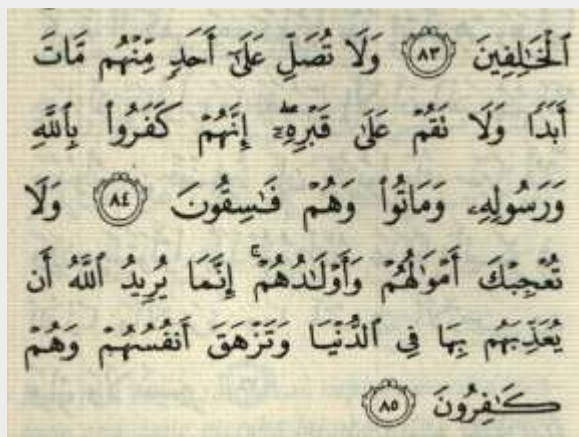 ٱلْخَٰلِفِينَ ٨٣ وَلَا تُصَلِّ عَلَىٰٓ أَحَدٍ مِّنْهُم مَّاتَ
أَبَدًا وَلَا تَقُمْ عَلَىٰ قَبْرِهِۦٓ ۖ إِنَّهُمْ كَفَرُوا۟ بِٱللَّهِ
وَرَسُولِهِۦ وَمَاتُوا۟ وَهُمْ فَٰسِقُونَ ٨٤ وَلَا
تُعْجِبْكَ أَمْوَٰلُهُمْ وَأَوْلَٰدُهُمْ ۚ إِنَّمَا يُرِيدُ ٱللَّهُ أَن
يُعَذِّبَهُم بِهَا فِى ٱلدُّنْيَا وَتَزْهَقَ أَنفُسُهُمْ وَهُمْ
كَٰفِرُونَ ٨٥